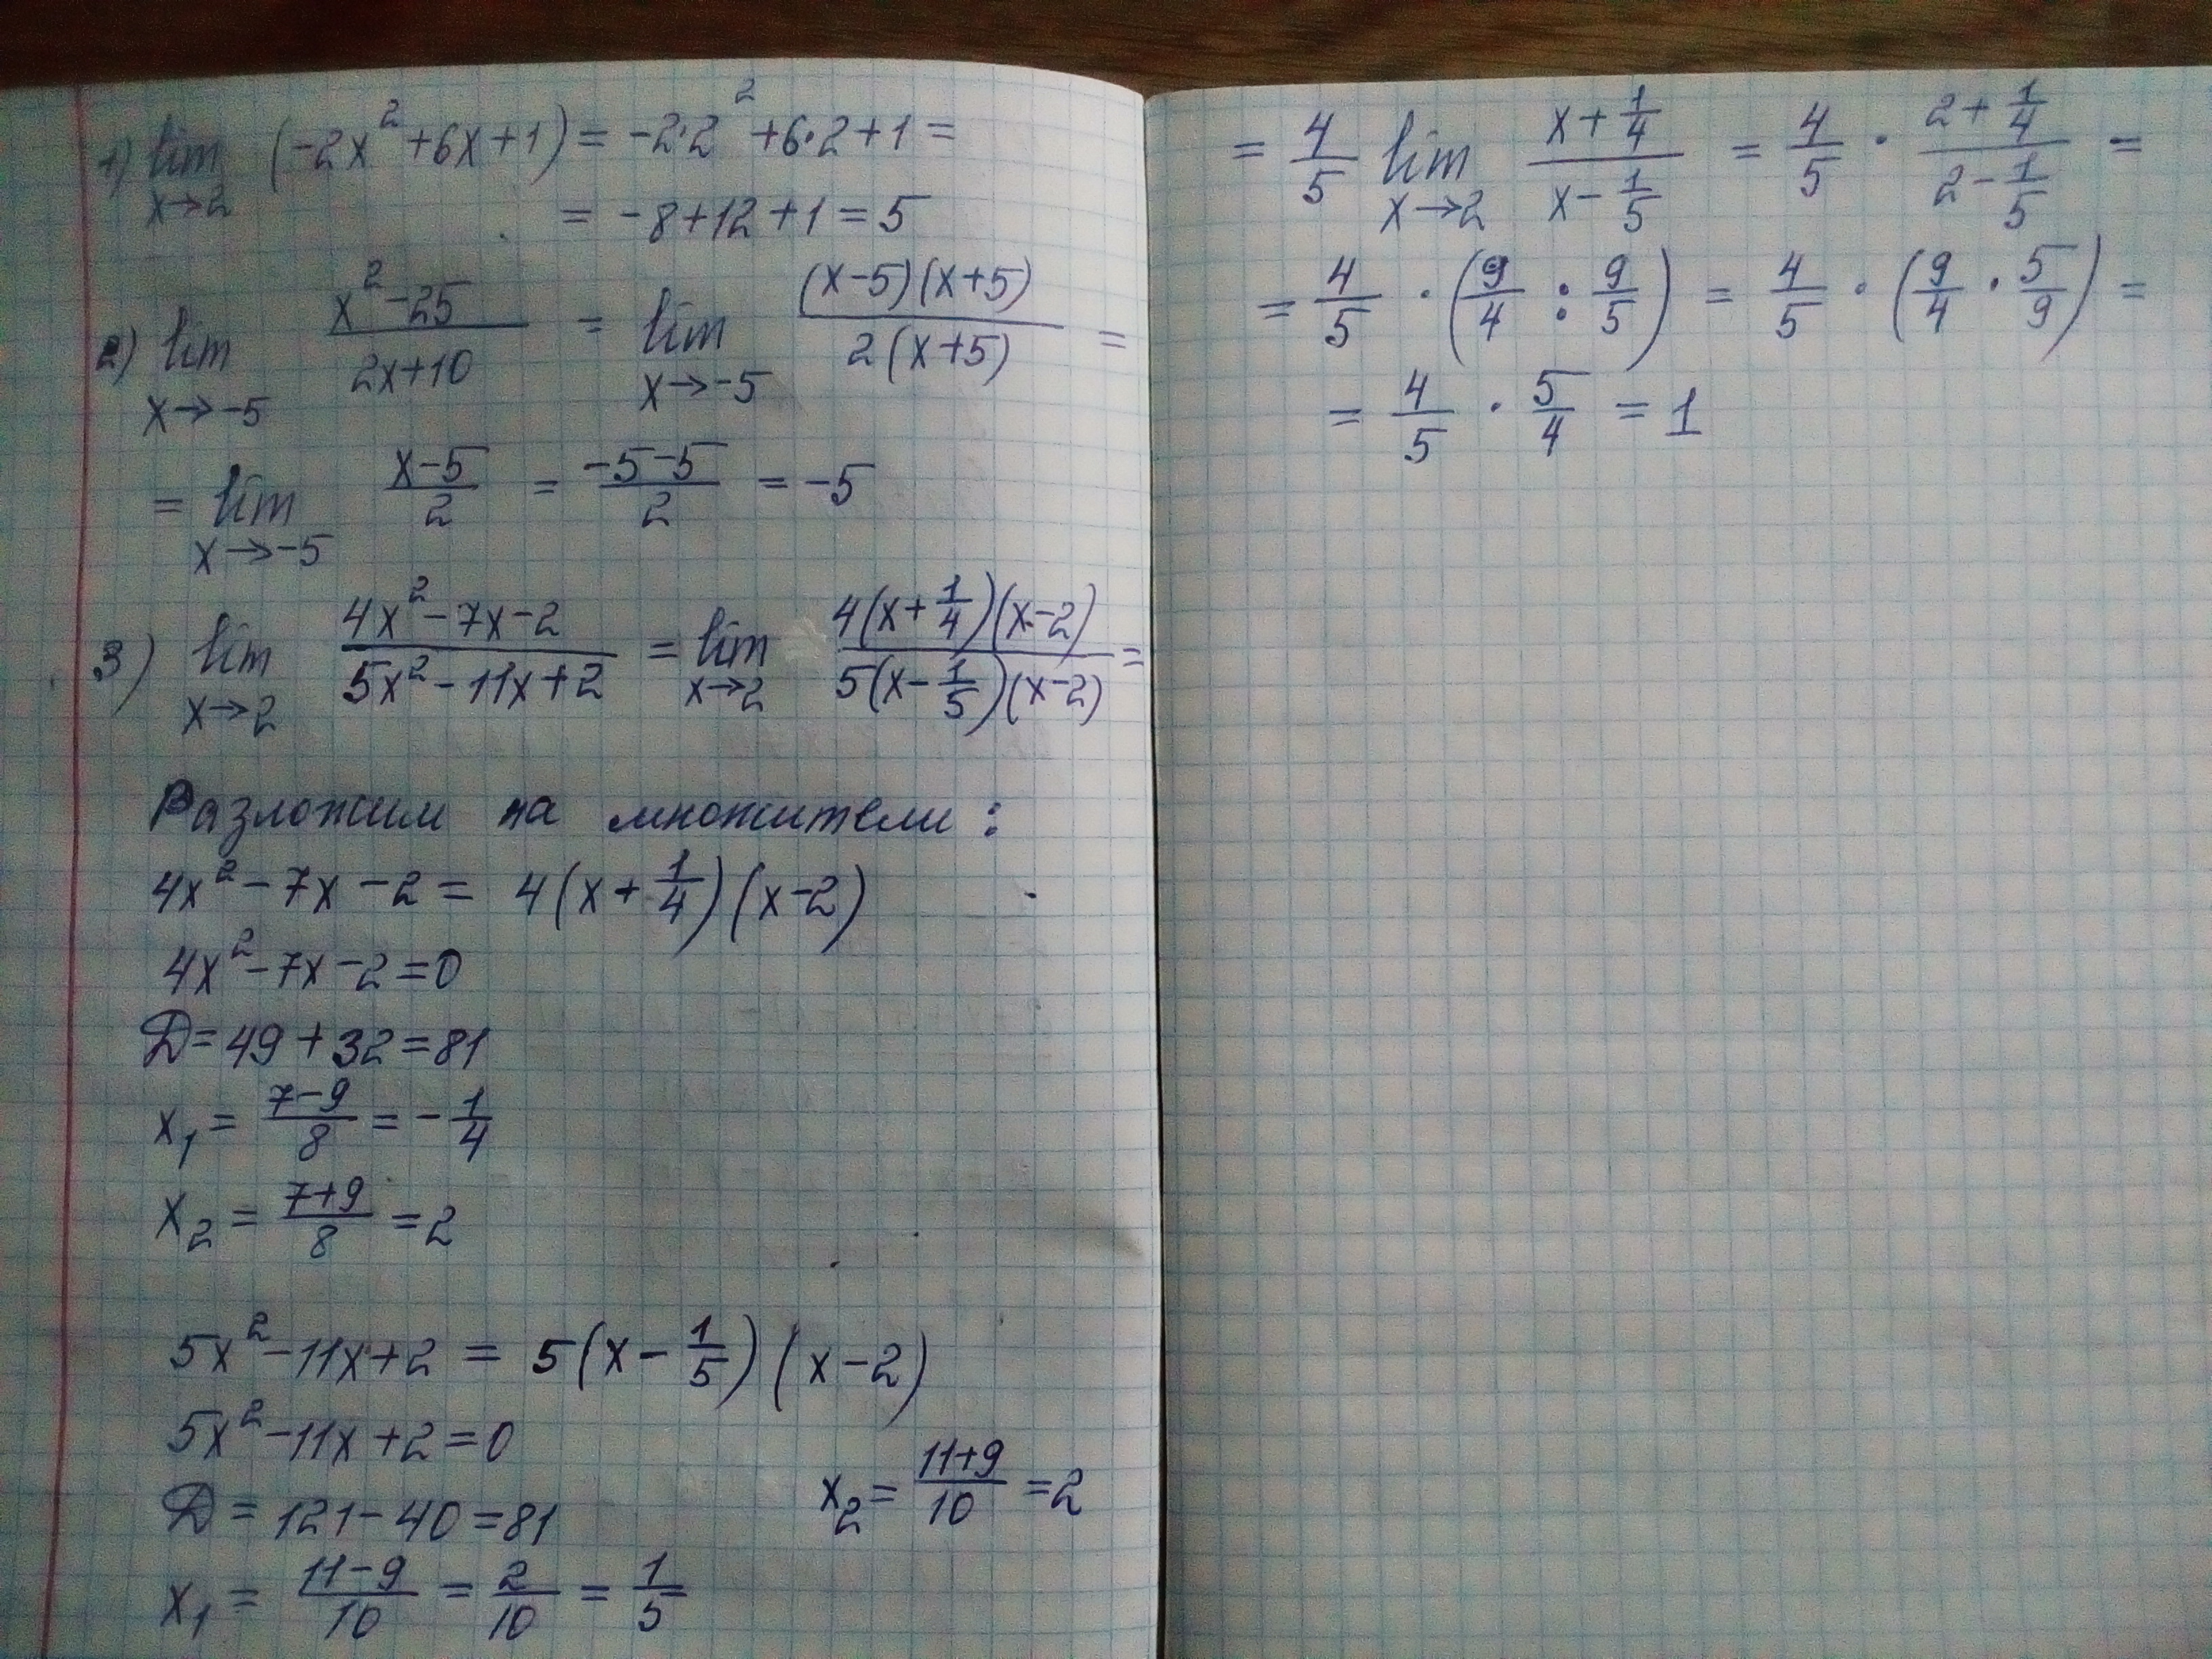 1) lim (-2x²+6x+1) = -2·2²+6·2+1 =
x→2
= -8+12+1=5
2) lim (x²-25)/(2x+10) = lim ((x-5)(x+5))/(2(x+5)) =
x→-5 x→-5
= lim (x-5)/2 = (-5-5)/2 = -5
x→-5
3) lim (4x²-7x-2)/(5x²-11x+2) = lim (4(x+1/4)(x-2))/(5(x-1/5)(x-2)) =
x→2 x→2
Разложим на множители:
4x²-7x-2 = 4(x+1/4)(x-2)
4x²-7x-2=0
D=49+32=81
x₁ = (7-9)/8 = -1/4
x₂ = (7+9)/8 = 2
5x²-11x+2 = 5(x-1/5)(x-2)
5x²-11x+2=0
D = 121-40=81
x₁ = (11-9)/10 = 2/10 = 1/5
x₂ = (11+9)/10 = 2
= 4/5 lim (x+1/4)/(x-1/5) = 4/5 · (2+1/4)/(2-1/5) =
x→2
= 4/5 · (9/4 : 9/5) = 4/5 · (9/4 · 5/9) =
= 4/5 · 5/4 = 1